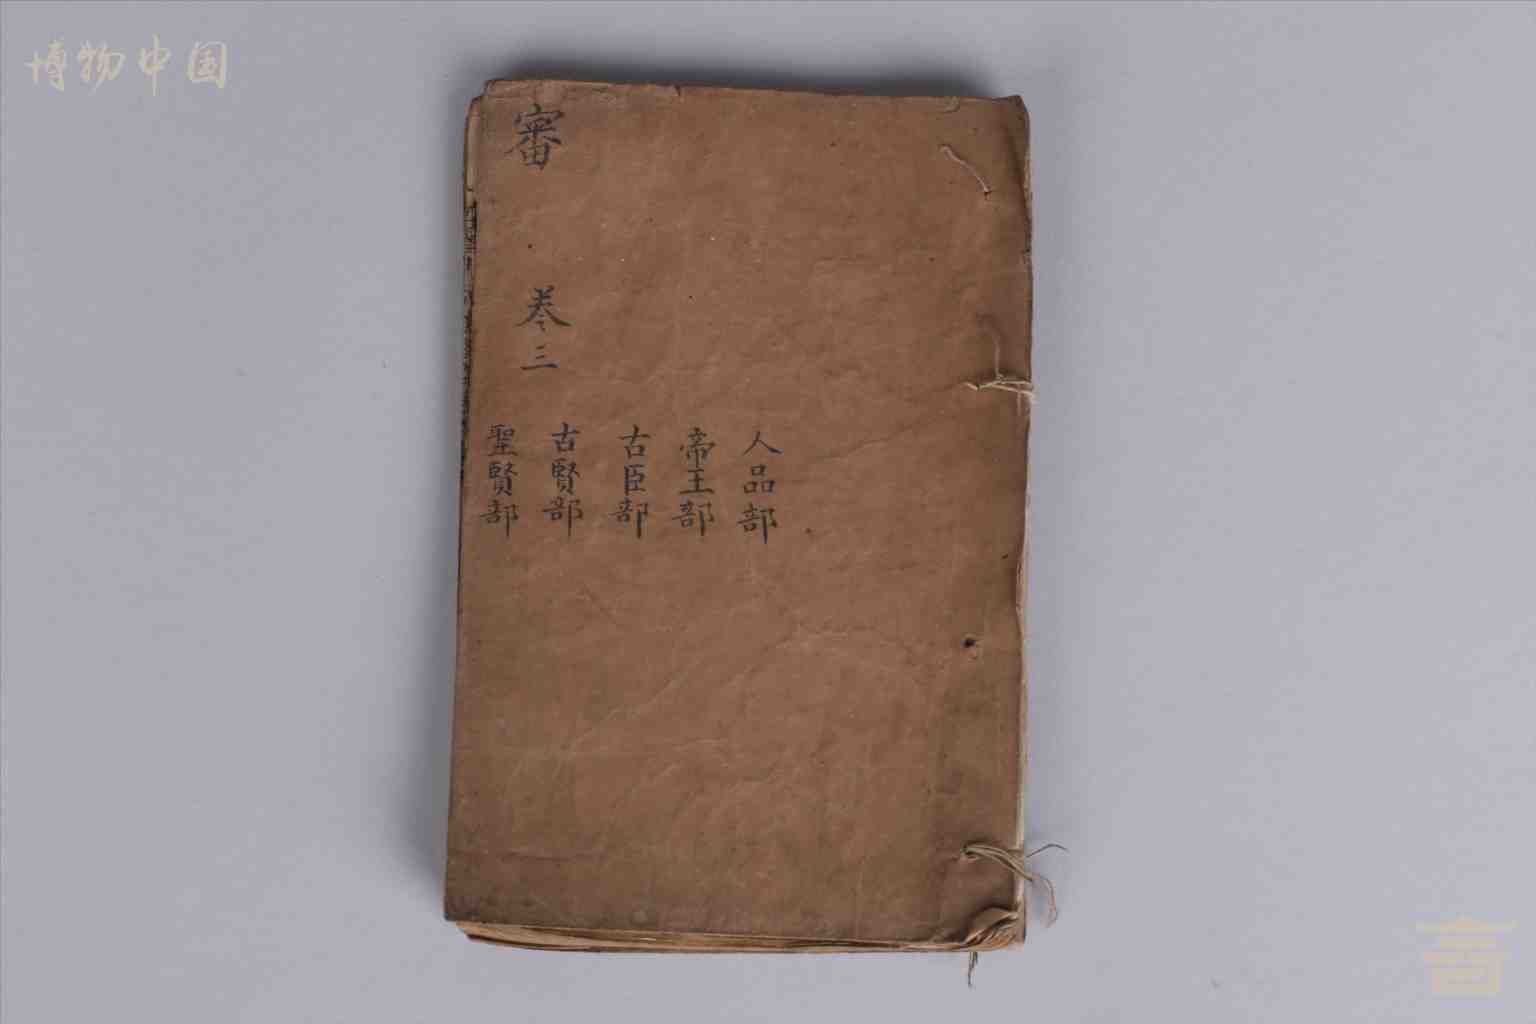 博物中国
審
卷三
人品部
帝王部
古臣部
古賢部
聖賢部